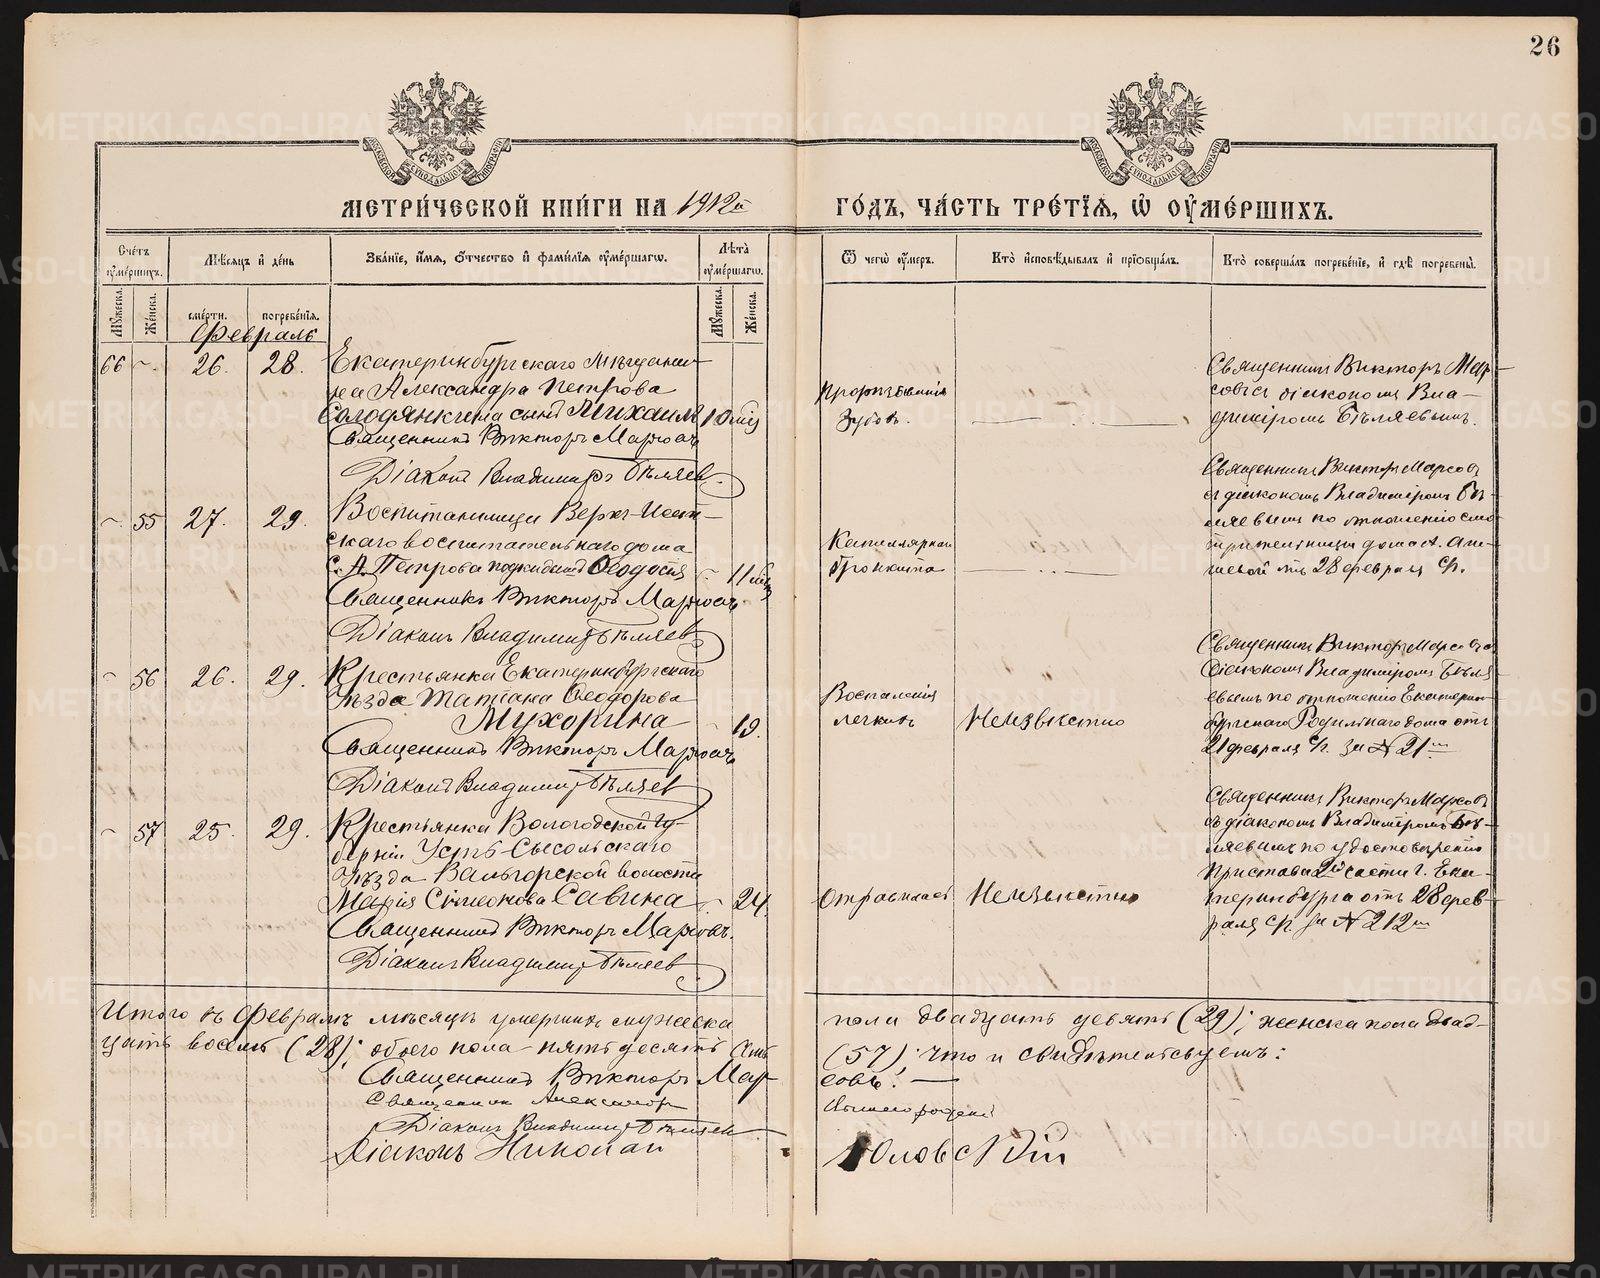 26
МОСКОВСКОЙ СѴНОДАЛЬНОЙ ТИПОГРАФІИ
МОСКОВСКОЙ СѴНОДАЛЬНОЙ ТИПОГРАФІИ
МЕТРИ́ЧЕСКОЙ КНИ́ГИ НА 1912й ГО́ДЪ, ЧА́СТЬ ТРЕ́ТІѦ, Ѡ ОУМЕ́РШИХЪ.
Счетъ оумершихъ.
Мѣсѧцъ и день
Званіе, имѧ, отчество и фамиліѧ оумершагѡ.
Лѣта оумершагѡ.
Ѿ чегѡ оумеръ.
Кто исповѣдывалъ и пріобщалъ.
Кто совершалъ погребеніе, и гдѣ погребены.
Мужеска.
Женска.
смерти.
погребенія.
Мужеска.
Женска.
Февраль
66 ~ 26. 28. Екатеринбургскаго мѣщани-
на Александра Петрова
Солодянкина сынъ Михаилъ 10 мѣс
Священникъ Викторъ Марсовъ
Діаконъ Владимиръ Бѣляевъ.
Прорѣзываніе
Зубовъ.
Священникъ Викторъ Мар-
совъ съ діакономъ Вла-
диміромъ Бѣляевымъ.
~ 55 27. 29. Воспитанница Верхъ-Исет-
скаго воспитательнаго дома
С. А. Петрова подкидышъ Ѳеодосія ~ 11 мѣс
Священникъ Викторъ Марсовъ.
Діаконъ Владимиръ Бѣляевъ
Капиллярный
бронхитъ
Священникъ Викторъ Марсовъ
съ діакономъ Владиміромъ Бѣ-
ляевымъ по отношенію смо-
трительницы дома А.
отъ 28 февраля с/г.
~ 56 26. 29. Крестьянка Екатеринбургскаго
Уѣзда Татіана Ѳеодорова
Мухорина ~ 19.
Священникъ Викторъ Марсовъ
Діаконъ Владимиръ Бѣляевъ
Воспаленія
легкихъ
Неизвѣстно
Священникъ Викторъ Марсовъ съ
діакономъ Владиміромъ Бѣля-
евымъ по отношенію Екатерин-
бургскаго Родильнаго дома отъ
21 февраля с/г. за № 21м
~ 57 25. 29. Крестьянка Вологодской гу-
берніи Усть-Сысольскаго
Уѣзда Вальгорской волости
Марія Сімеонова Савина ~ 24
Священникъ Викторъ Марсовъ.
Діаконъ Владимиръ Бѣляевъ
Отравилась
Неизвѣстно
Священникъ Викторъ Марсовъ
съ діакономъ Владиміромъ Бѣ-
ляевымъ по удостовѣренію
Пристава 2й части г. Ека-
теринбурга отъ 28 фев-
раля с/г. за № 212м
Итого въ Февралѣ мѣсяцѣ умершихъ мужеска пола двадцать девять (29); женска пола двад-
цать восемь (28); обоего пола пятьдесятъ семь (57); что и свидѣтельствуемъ:
Священникъ Викторъ Марсовъ.
Священникъ Александръ
Діаконъ Владимиръ Бѣляевъ
Діаконъ Николай
METRIKI.GASO-URAL.RU